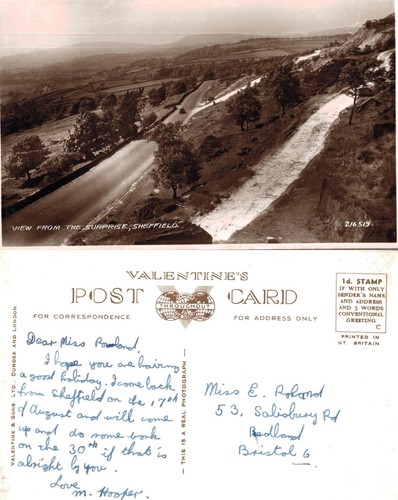 VIEW FROM THE SURPRISE, SHEFFIELD.
216519.
VALENTINE'S
POST CARD
THROUGHOUT
FOR CORRESPONDENCE
FOR ADDRESS ONLY
1d. STAMP
IF WITH ONLY
SENDER'S NAME
AND ADDRESS
AND 5 WORDS
CONVENTIONAL
GREETING
C
PRINTED IN
GT. BRITAIN
VALENTINE & SONS. LTD., DUNDEE AND LONDON.
THIS IS A REAL PHOTOGRAPH
Dear Miss
I hope you are having
a good holiday. I come back
from Sheffield on the 17th
of August and will come
up and do some work
on the 30th if that is
alright by you.
Love
M. Hooper.
Miss E. Roland
53, Salisbury Rd
Redland
Bristol 6